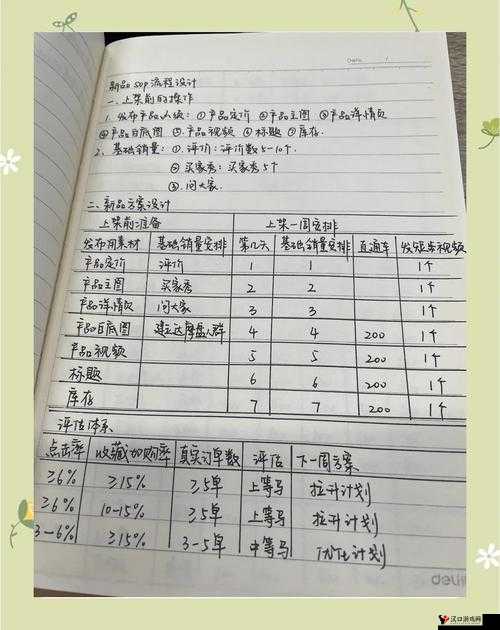 Deli
新品SOP流程设计
一、上架前的操作
1. 发布产品八块：①产品定价 ②产品主图 ③产品详情页
④产品白底图 ⑤产品视频 ⑥标题 ⑦库存.
2. 基础销量：①. 评价：评价数5-10个.
② 买家秀：买家秀5个
③. 问大家.
二、新品方案设计
上架前准备 上架一周安排
发布用素材 基础销量安排 第几天 基础销量安排 直通车 发短车视频
产品定价 评价 1 1 1个
产品主图 买家秀 2 2 1个
产品详情页 问大家 3 3 1个
产品白底图 建立达摩盘人群 4 4 200 1个
产品视频 5 5 200 1个
标题 6 6 200 1个
库存 7 7 200 1个
评估体系
点击率 收藏加购率 真实订单数 评估 下一周方案
≥6% ≥15% ≥5单 上等马 拉升计划
≥6% 10-15% ≥5单 上等马 拉升计划
3-6% ≥15% 3-5单 中等马 优化计划
deli
汉口游戏网